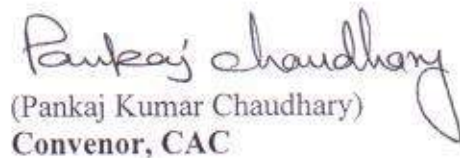 Pankaj Chaudhary
(Pankaj Kumar Chaudhary)
Convenor, CAC